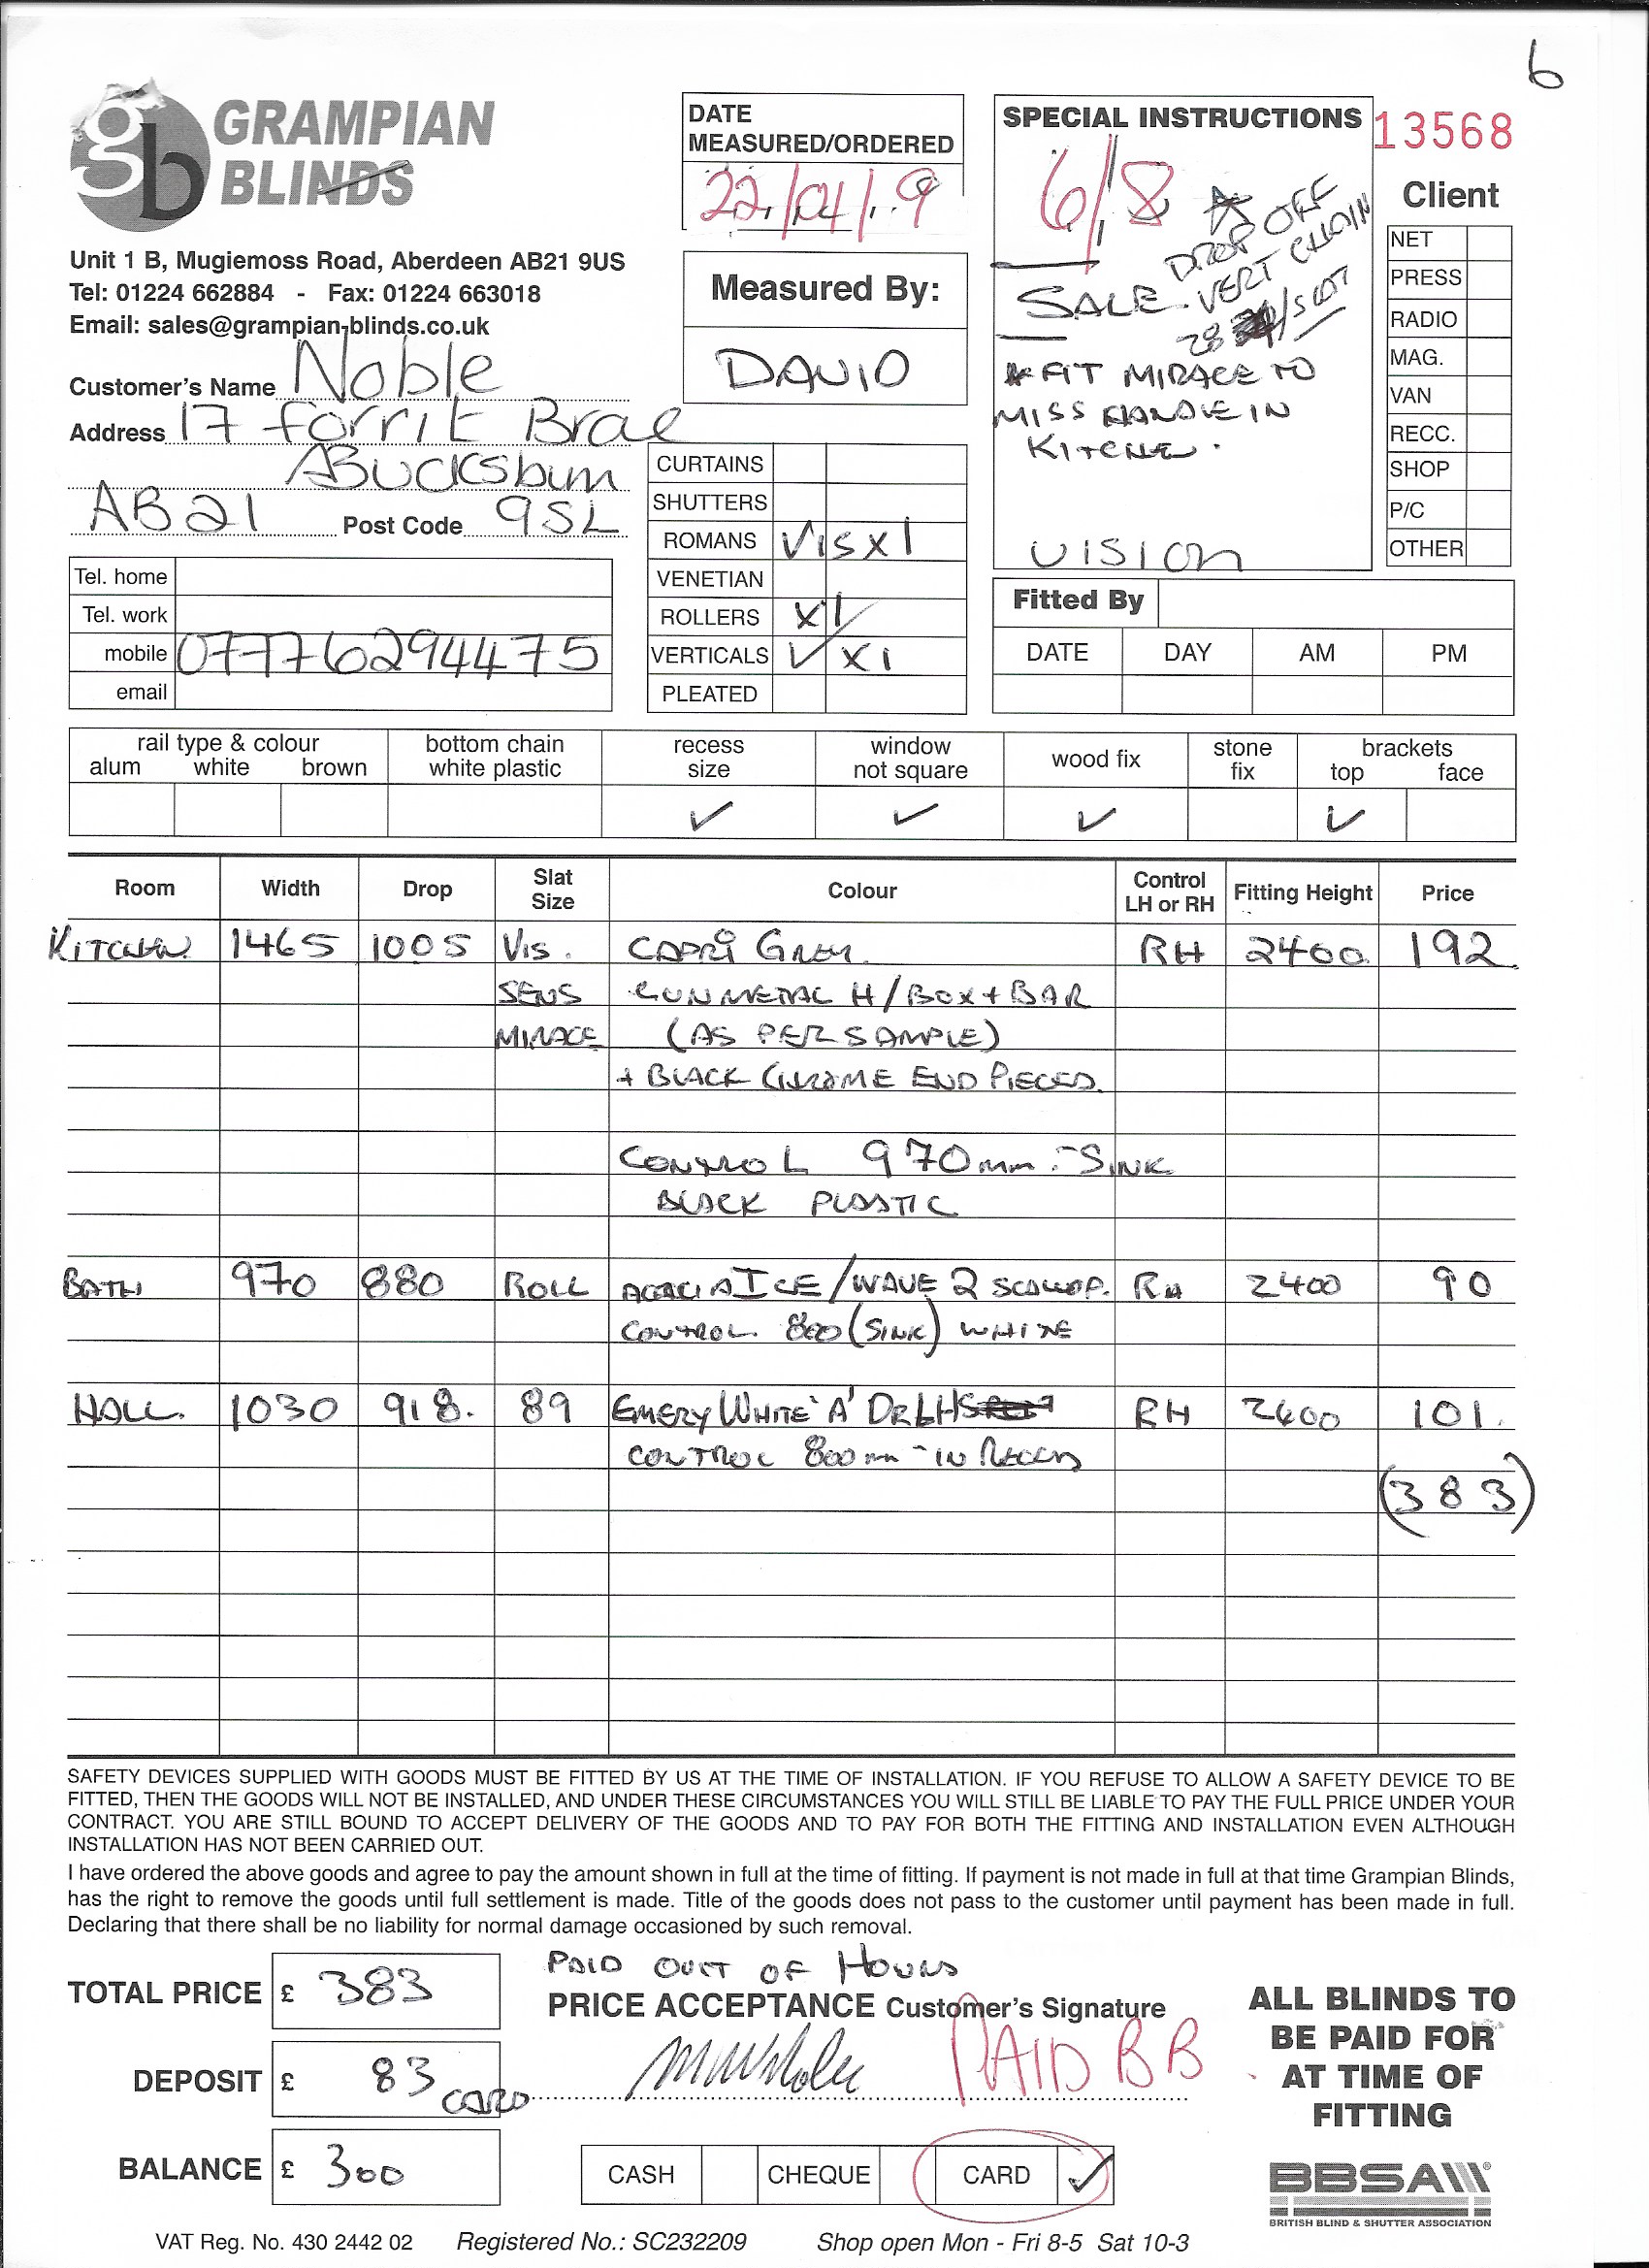 6
GRAMPIAN
BLINDS
Unit 1 B, Mugiemoss Road, Aberdeen AB21 9US
Tel: 01224 662884 - Fax: 01224 663018
Email: sales@grampian-blinds.co.uk
Customer's Name Noble
Address 17 Forrit Brae
Bucksburn
AB21 Post Code 9SL
Tel. home
Tel. work
mobile 07776294475
email
DATE
MEASURED/ORDERED
Measured By:
DAVID
CURTAINS
SHUTTERS
ROMANS VIS x 1
VENETIAN
ROLLERS x 1
VERTICALS ✓ x 1
PLEATED
SPECIAL INSTRUCTIONS
6/8
DROP OFF
VERT CHAIN
28 /SLOT
SALE.
* FIT MIRAGE TO
MISS HANDLE IN
KITCHEN.
VISION
13568
Client
NET
PRESS
RADIO
MAG.
VAN
RECC.
SHOP
P/C
OTHER
Fitted By
DATE DAY AM PM
rail type & colour bottom chain recess window wood fix stone brackets
alum white brown white plastic size not square fix top face
✓ ✓ ✓ ✓
Room Width Drop Slat Size Colour Control LH or RH Fitting Height Price
KITCHEN 1465 1005 VIS. CAPRI GREY RH 2400 192
SENS GUNMETAL H/BOX + BAR
MIRAGE (AS PER SAMPLE)
+ BLACK CHROME END PIECES.
CONTROL 970mm - SINK
BLACK PLASTIC
BATH 970 880 ROLL ACACIA ICE/WAVE 2 SCALLOP. RH 2400 90
CONTROL 800 (SINK) WHITE
HALL 1030 918. 89 EMERY WHITE 'A' DR LHS RH 2400 101.
CONTROL 800mm - IN RECESS
(383)
SAFETY DEVICES SUPPLIED WITH GOODS MUST BE FITTED BY US AT THE TIME OF INSTALLATION. IF YOU REFUSE TO ALLOW A SAFETY DEVICE TO BE
FITTED, THEN THE GOODS WILL NOT BE INSTALLED, AND UNDER THESE CIRCUMSTANCES YOU WILL STILL BE LIABLE TO PAY THE FULL PRICE UNDER YOUR
CONTRACT. YOU ARE STILL BOUND TO ACCEPT DELIVERY OF THE GOODS AND TO PAY FOR BOTH THE FITTING AND INSTALLATION EVEN ALTHOUGH
INSTALLATION HAS NOT BEEN CARRIED OUT.
I have ordered the above goods and agree to pay the amount shown in full at the time of fitting. If payment is not made in full at that time Grampian Blinds,
has the right to remove the goods until full settlement is made. Title of the goods does not pass to the customer until payment has been made in full.
Declaring that there shall be no liability for normal damage occasioned by such removal.
TOTAL PRICE £ 383
DEPOSIT £ 83 CARD
BALANCE £ 300
PAID OUT OF HOURS
PRICE ACCEPTANCE Customer's Signature
PAID BB
CASH CHEQUE CARD ✓
ALL BLINDS TO
BE PAID FOR
AT TIME OF
FITTING
BBSA
BRITISH BLIND & SHUTTER ASSOCIATION
VAT Reg. No. 430 2442 02 Registered No.: SC232209 Shop open Mon - Fri 8-5 Sat 10-3